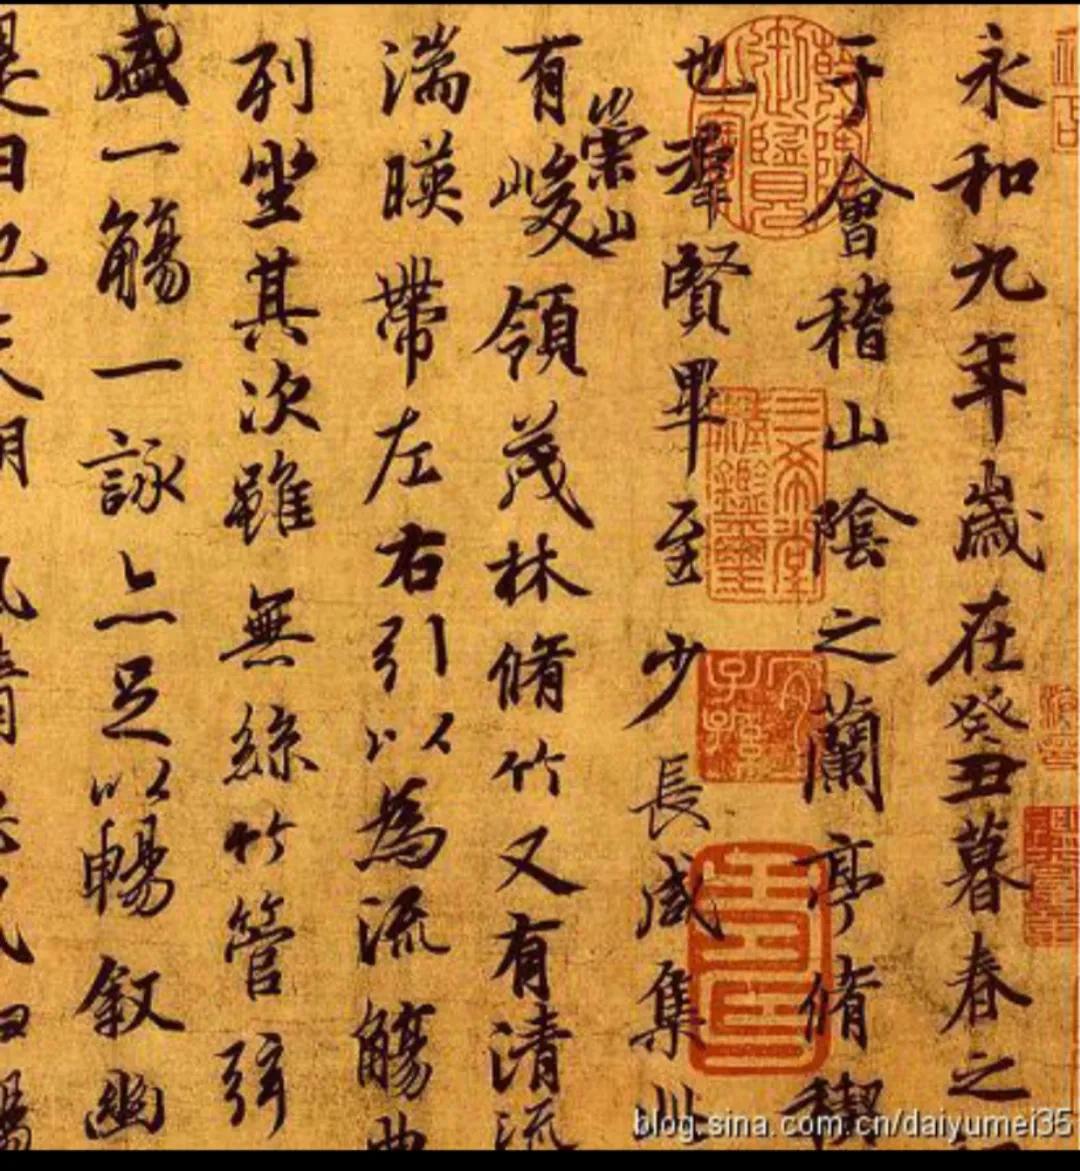 永和九年歲在癸丑暮春之
于會稽山陰之蘭亭脩禊
也羣賢畢至少長咸集此
有崇山峻領茂林脩竹又有清流
湍暎帶左右引以為流觴曲
列坐其次雖無絲竹管弦
盛一觴一詠亦足以暢敘幽
是日也天朗 風
三希堂精鑑璽
blog.sina.com.cn/daiyumei35